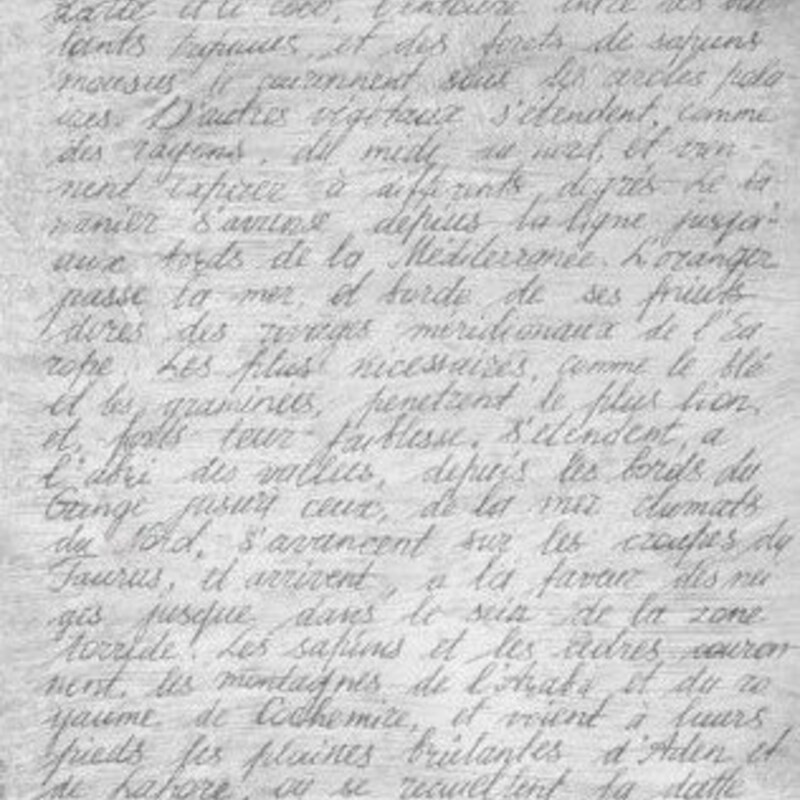 et le coco,
et des forêts de sapins
sous les cercles pola-
ires. D'autres végétaux s'étendent, comme
des rayons, du midi au nord, et vien-
nent expirer à différents degrés de la
s'avance depuis la ligne jusqu'
aux bords de la Méditerranée. L'oranger
passe la mer, et borde de ses fruits
dorés des rivages méridionaux de l'Eu-
rope. Les plus nécessaires, comme le blé
et les graminées, pénètrent le plus loin,
et, forts leur faiblesse, s'étendent, a
l'abri des vallées, depuis les bords du
Gange jusqu'à ceux, de la mer
du Nord, s'avancent sur les croupes du
Taurus, et arrivent, a la faveur des nei
ges jusque dans le sein de la zone
torride. Les sapins et les cèdres couron-
nent, les montagnes de l'Arabi et du ro
yaume de Cachemire, et voient à leurs
pieds les plaines brûlantes d'Aden et
de Lahore, ou se recueillent la datte